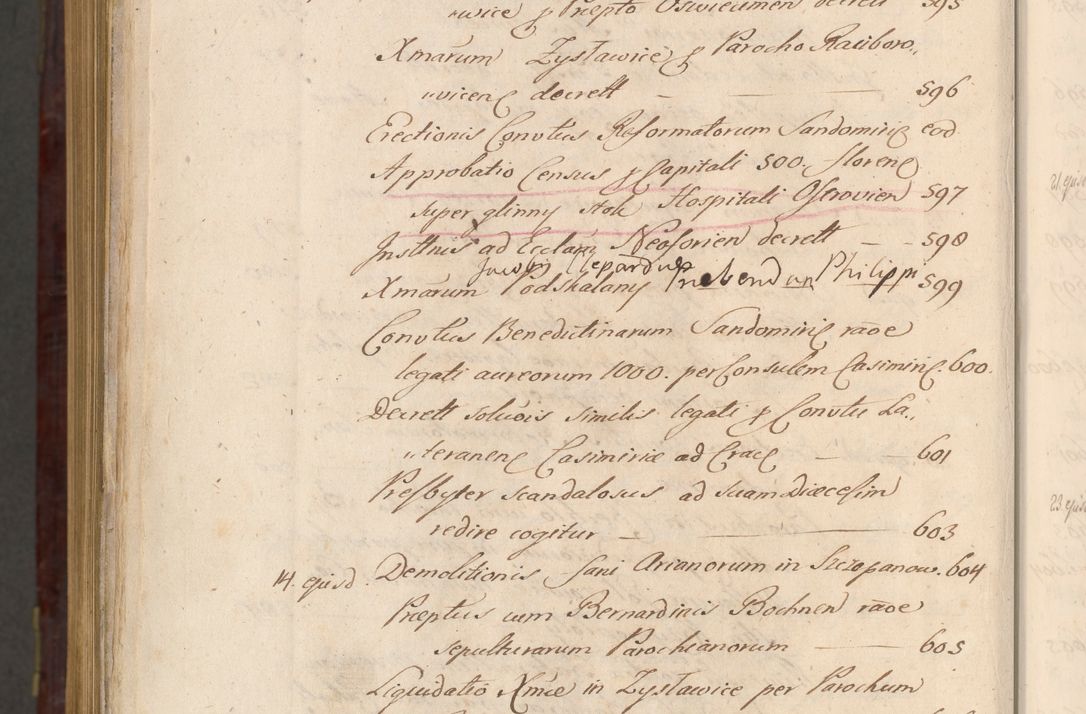 wice ꝑ Præpto Oswiecimen decrett 595
Xmarum Zysławice ꝑ Parocho Raciboro„
„wicenȩ decrett — — 596
Erectionis Convtus Reformatorum Sandomirię eod
Approbatio Census ꝑ Capitali 500. florenȩ
super glinny stok Hospitali Ostrovien 597
Insttnis ad Ecclam Neoforien decrett — — 598
Jacobi Prebendam Philippi
Xmarum Podskalany 599
Convtus Benedictinarum Sandomirię raōe
legati aureorum 1000. per Consulem Casimirię. 600.
Decrett soluōis similis legati ꝑ Convtu La„
„teranenȩ Casimiriæ ad Cracȩ — — 601
Presbyter scandalosus ad suam Diæcesim
redire cogitur — — 603
14. episd. Demolitionis fani Arianorum in Szczepanow. 604
Præptus cum Bernardinis Bochnen raōe
sepulturarum Parochianorum — 605
Liquidatio Xmæ in Zysławice per Parochum
21.
23.